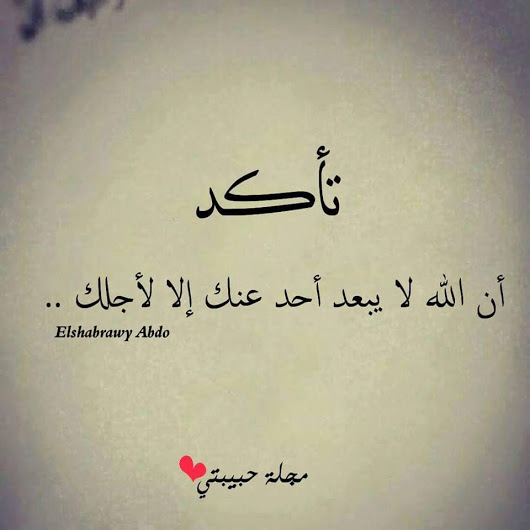 تأكد
أن الله لا يبعد أحد عنك إلا لأجلك ..
Elshabrawy Abdo
مجلة حبيبتي